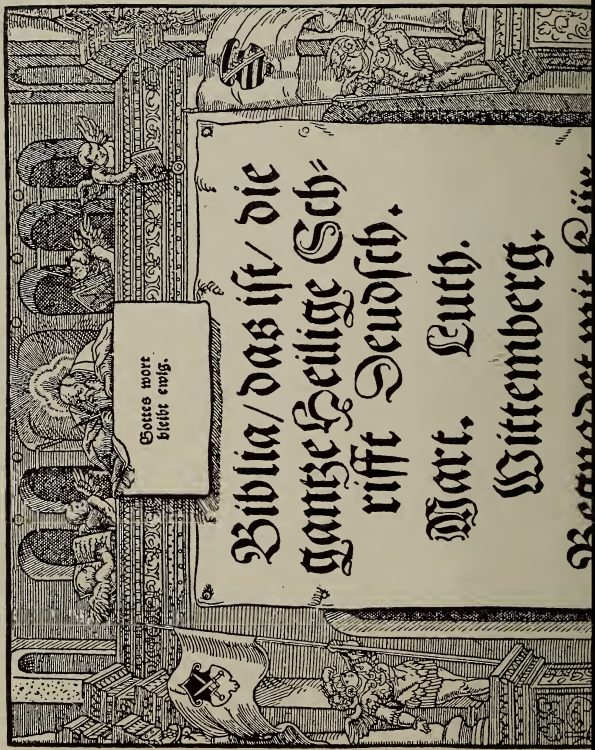 Gottes wort
bleibt ewig.
Biblia/ das ist/ die
gantze Heilige Sch⸗
rifft Deudsch.
Mart. Luth.
Wittemberg.
Begnadet mit